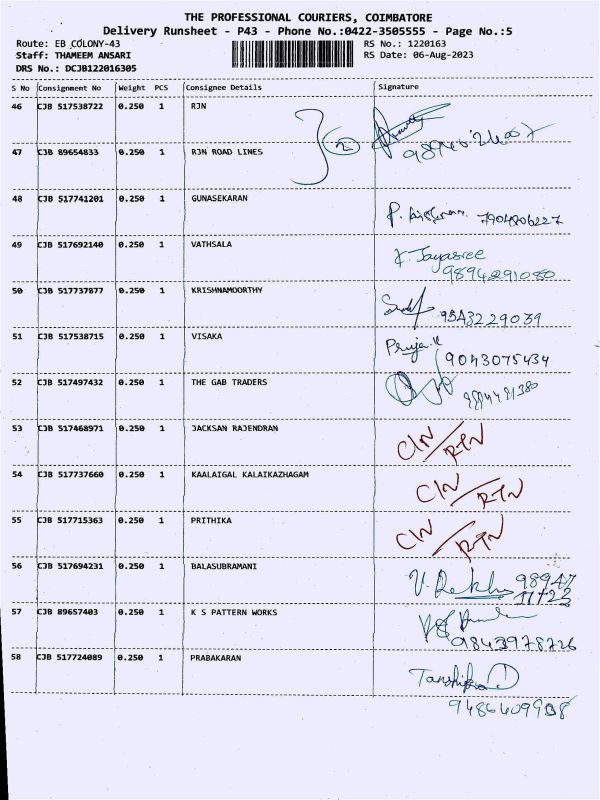 THE PROFESSIONAL COURIERS, COIMBATORE
Delivery Runsheet - P43 - Phone No.:0422-3505555 - Page No.:5
Route: EB COLONY-43 RS No.: 1220163
Staff: THAMEEM ANSARI RS Date: 06-Aug-2023
DRS No.: DCJB122016305
S No Consignment No Weight PCS Consignee Details Signature
46 CJB 517538722 0.250 1 RJN
2
47 CJB 89654833 0.250 1 RJN ROAD LINES
48 CJB 517741201 0.250 1 GUNASEKARAN
P. 7904806227
49 CJB 517692140 0.250 1 VATHSALA
K. Jayasree
9894291080
50 CJB 517737877 0.250 1 KRISHNAMOORTHY
9543229039
51 CJB 517538715 0.250 1 VISAKA
Pruja.K
9043075434
52 CJB 517497432 0.250 1 THE GAB TRADERS
53 CJB 517468971 0.250 1 JACKSAN RAJENDRAN
CIN/RTN
54 CJB 517737660 0.250 1 KAALAIGAL KALAIKAZHAGAM
CIN/RTN
55 CJB 517715363 0.250 1 PRITHIKA
CIN/RTN
56 CJB 517694231 0.250 1 BALASUBRAMANI
V. Rekha 98947
11722
57 CJB 89657403 0.250 1 K S PATTERN WORKS
9843978726
58 CJB 517724089 0.250 1 PRABAKARAN
9486409908